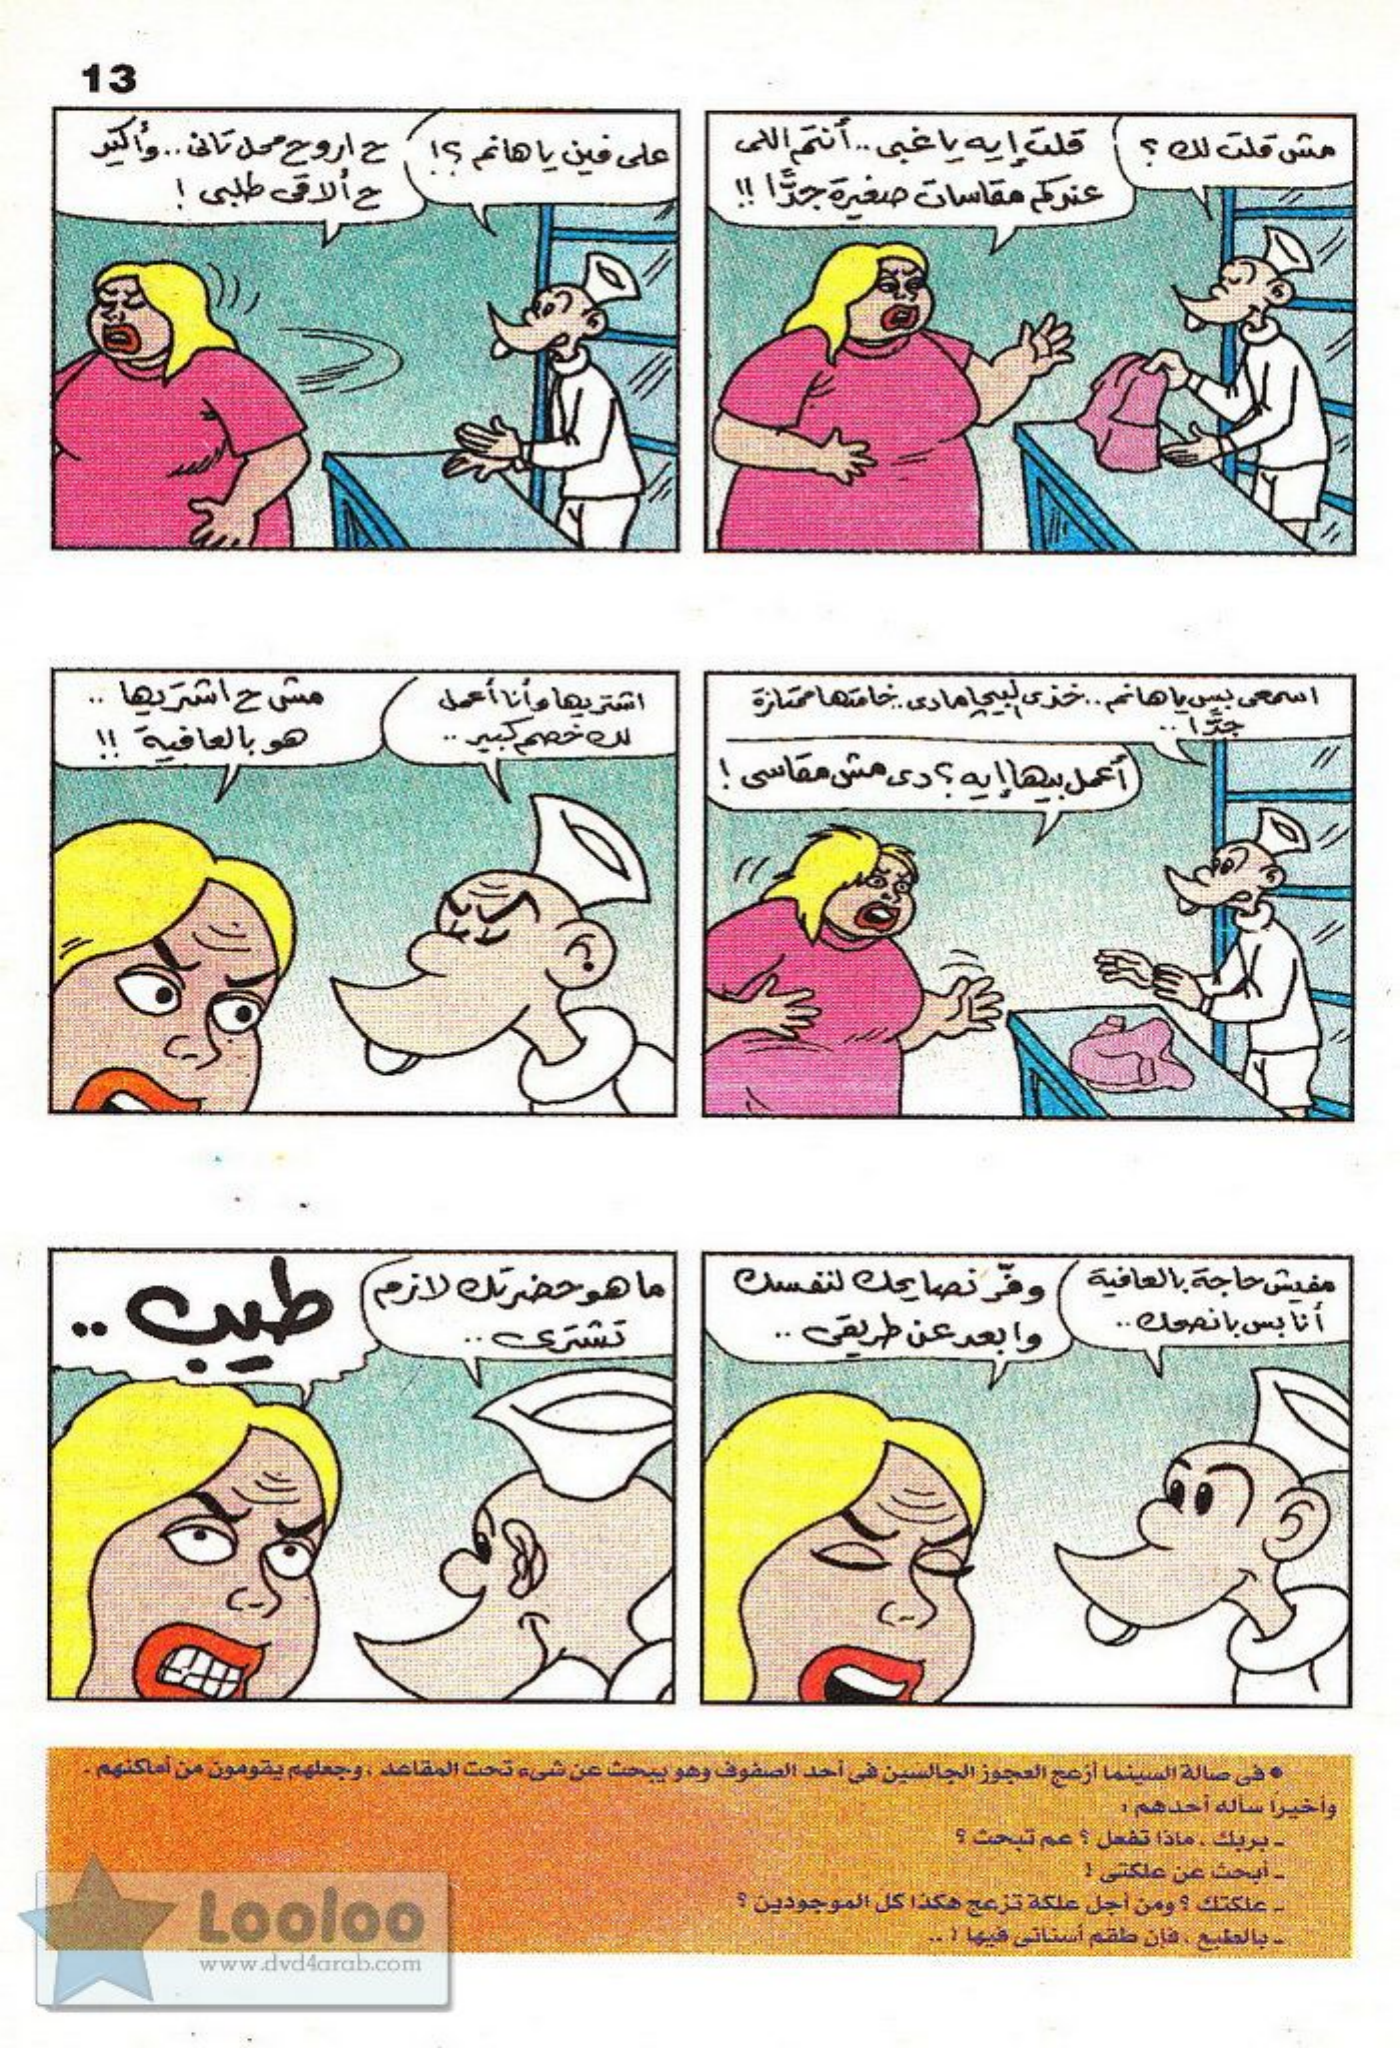 13
مش قلت لك ؟
قلت إيه يا غبى .. أنتم اللى
عندكم مقاسات صغيرة جدًّا !!
على فين يا هانم ؟!
ح اروح محل تانى .. وأكيد
ح ألاقى طلبى !
اسمعى بس يا هانم .. خذى البيجاما دى .. خامتها ممتازة
جدًّا ..
أعمل بيها إيه ؟ دى مش مقاسى !
اشتريها وأنا أعمل
لك خصم كبير ..
مش ح اشتريها ..
هو بالعافية !!
مفيش حاجة بالعافية
أنا بس بانصحك ..
وفّر نصايحك لنفسك
وابعد عن طريقى ..
ما هو حضرتك لازم
تشترى ..
طيب ..
• فى صالة السينما أزعج العجوز الجالسين فى أحد الصفوف وهو يبحث عن شىء تحت المقاعد ، وجعلهم يقومون من أماكنهم .
وأخيرًا سأله أحدهم :
ـ بربك ، ماذا تفعل ؟ عم تبحث ؟
ـ أبحث عن علكتى !
ـ علكتك ؟ ومن أجل علكة تزعج هكذا كل الموجودين ؟
ـ بالطبع ، فإن طقم أسنانى فيها ! ..
Looloo
www.dvd4arab.com